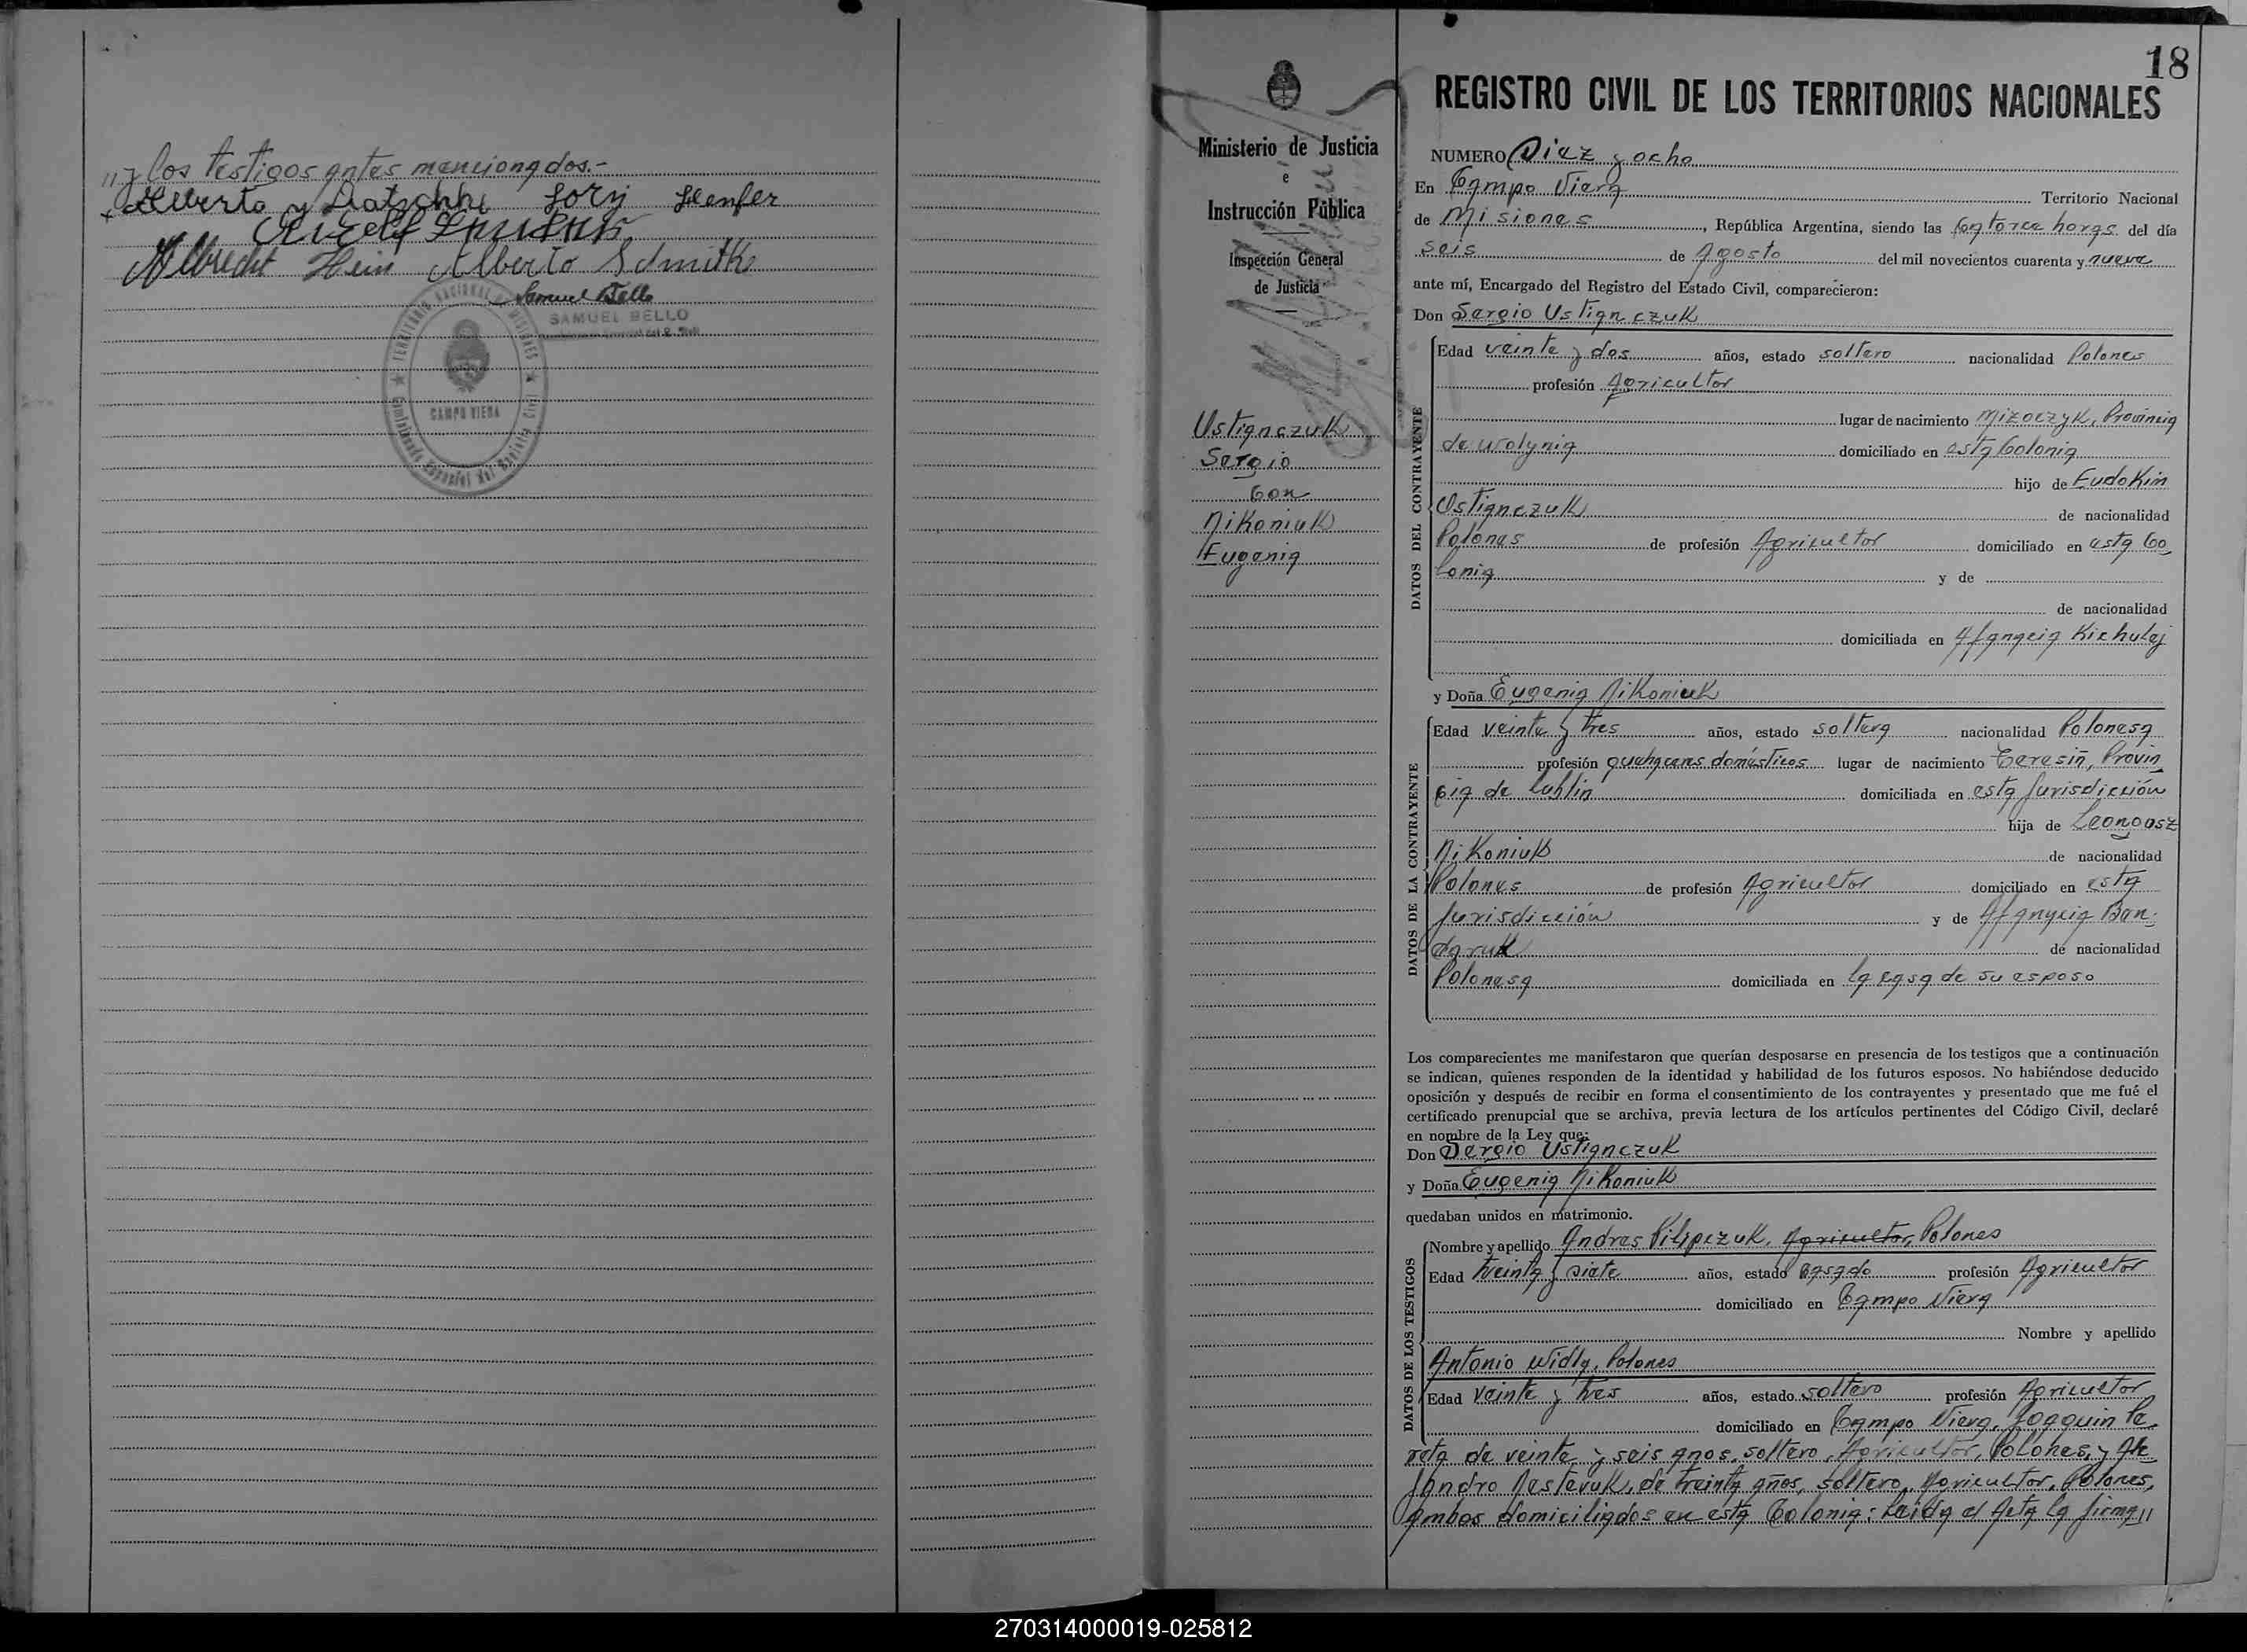 " y los testigos antes mencionados.-
Alberto Schmitke
Albrecht Hein
Samuel Bello
SAMUEL BELLO
TERRITORIO NACIONAL MISIONES
CAMPO VIERA
18
REGISTRO CIVIL DE LOS TERRITORIOS NACIONALES
Ministerio de Justicia
e
Instrucción Pública
Inspección General
de Justicia
Ustianczuk
Sergio
con
Nikoniuk
Eugenia
NUMERO Diez y ocho
En Campo Viera Territorio Nacional
de Misiones, República Argentina, siendo las Catorce horas del día
seis de Agosto del mil novecientos cuarenta y nueve
ante mí, Encargado del Registro del Estado Civil, comparecieron:
Don Sergio Ustianczuk
DATOS DEL CONTRAYENTE
Edad veinte y dos años, estado soltero nacionalidad Polones
profesión Agricultor
lugar de nacimiento Mizoczyk, Provincia
de Wolynia domiciliado en esta Colonia
hijo de Eudokim
Ustianczuk de nacionalidad
Polones de profesión Agricultor domiciliado en esta Co
lonia y de
de nacionalidad
domiciliada en Afanacia Kichulej
y Doña Eugenia Nikoniuk
DATOS DE LA CONTRAYENTE
Edad veinte y tres años, estado soltera nacionalidad Polonesa
profesión quehaceres domésticos lugar de nacimiento Teresin, Provin
cia de Lublin domiciliada en esta Jurisdicción
hija de
Nikoniuk de nacionalidad
Polones de profesión Agricultor domiciliado en esta
Jurisdicción y de Afanycia Bon-
daruk de nacionalidad
Polonesa domiciliada en la casa de su esposo
Los comparecientes me manifestaron que querían desposarse en presencia de los testigos que a continuación
se indican, quienes responden de la identidad y habilidad de los futuros esposos. No habiéndose deducido
oposición y después de recibir en forma el consentimiento de los contrayentes y presentado que me fué el
certificado prenupcial que se archiva, previa lectura de los artículos pertinentes del Código Civil, declaré
en nombre de la Ley que:
Don Sergio Ustianczuk
y Doña Eugenia Nikoniuk
quedaban unidos en matrimonio.
DATOS DE LOS TESTIGOS
Nombre y apellido Andres Pilipczuk, Agricultor, Polones
Edad treinta y siete años, estado casado profesión Agricultor
domiciliado en Campo Viera
Nombre y apellido
Antonio Widla, Polones
Edad veinte y tres años, estado soltero profesión Agricultor
domiciliado en Campo Viera, Joaquin Pe
reta de veinte y seis anos, soltero, Agricultor, Polones, y Ale
jandro Nesteruk, de treinta años, soltero, Agricultor, Polones,
ambos domiciliados en esta Colonia: Leida el Acta la firma "
270314000019-025812